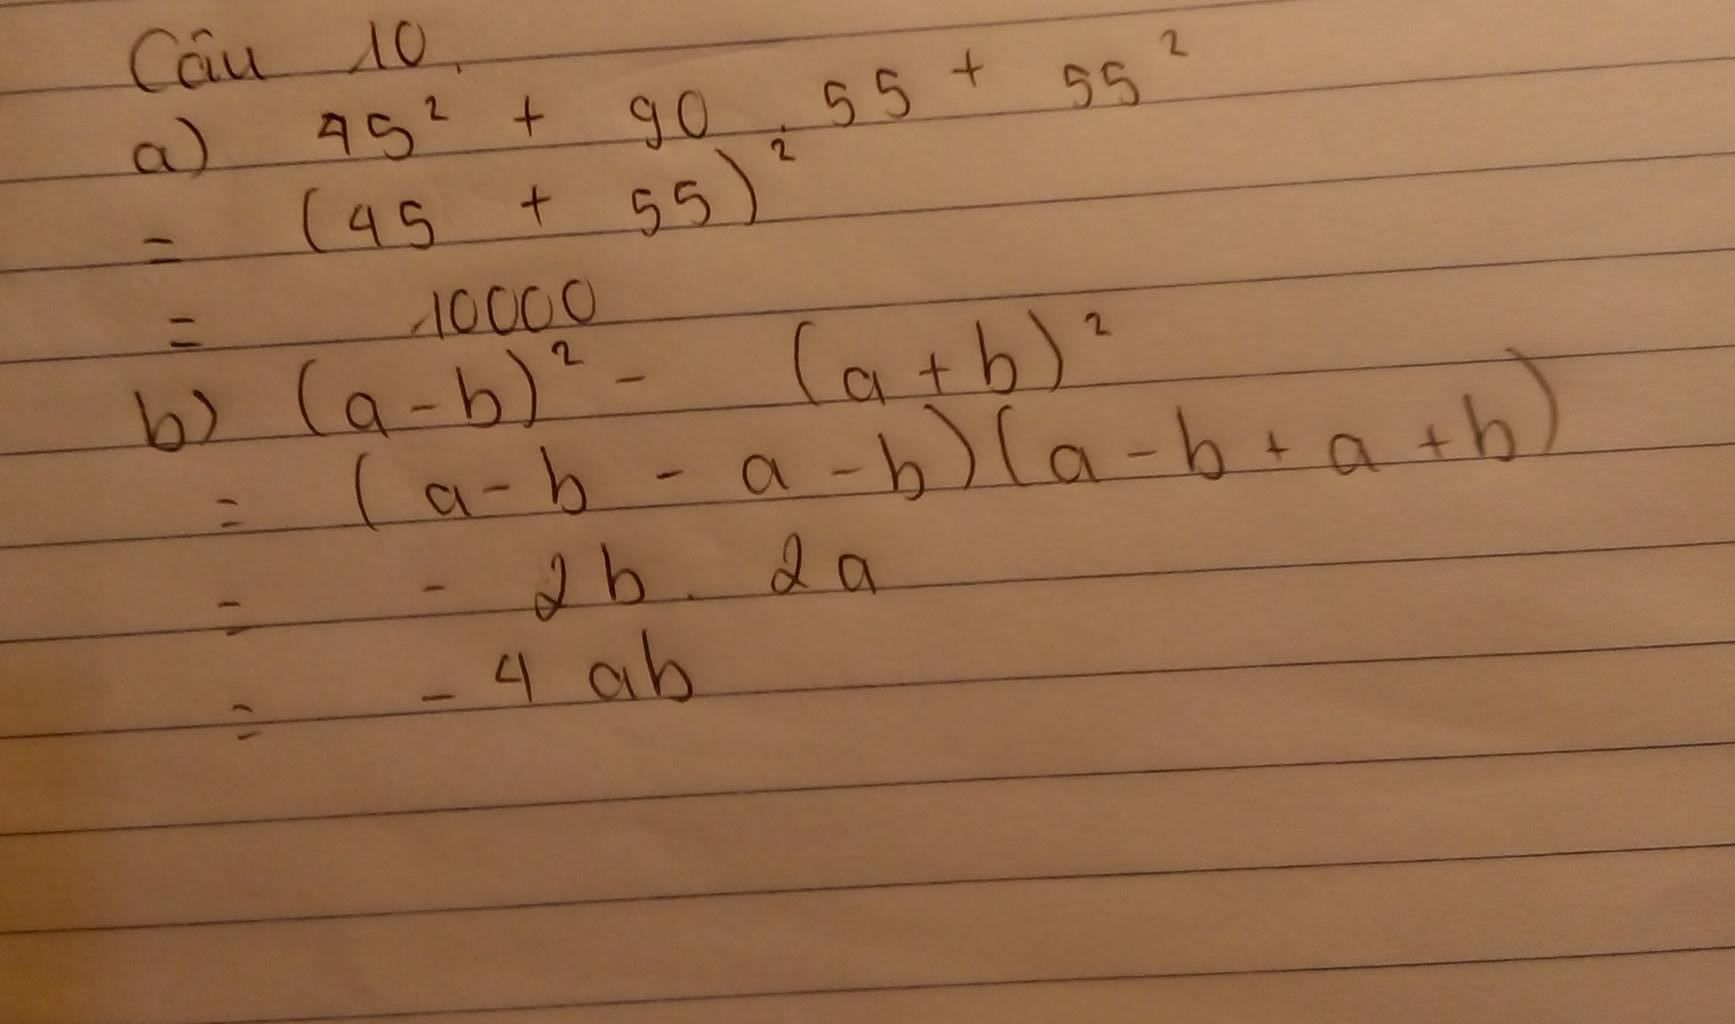 Câu 10.
a) 45² + 90 . 55 + 55²
= (45 + 55)²
= 10000
b) (a-b)² - (a+b)²
= (a-b - a -b)(a-b + a +b)
= - 2b . 2a
= - 4 ab